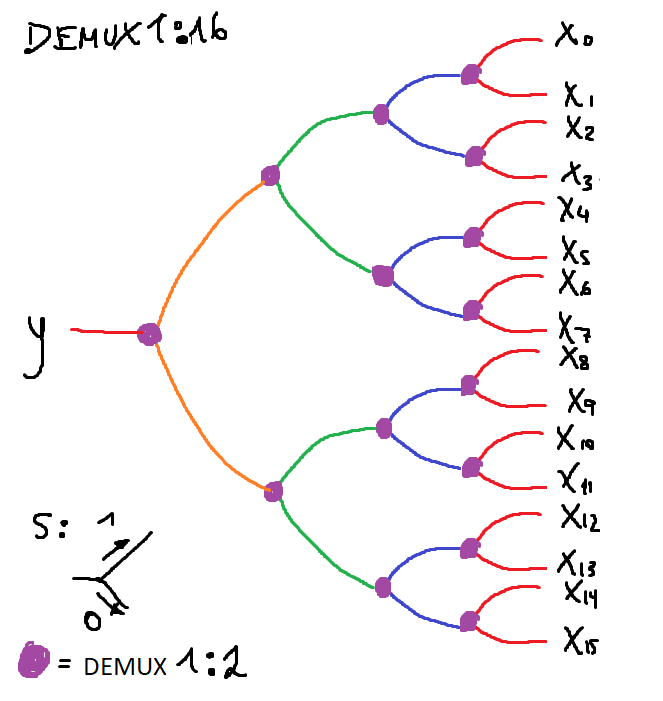 DEMUX 1:16
X0
X1
X2
X3
X4
X5
X6
X7
y
X8
X9
X10
X11
X12
X13
X14
X15
S: 1
0
= DEMUX 1:2